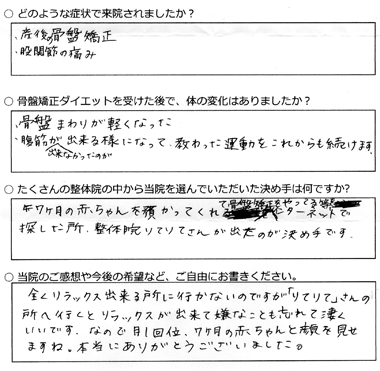 ○ どのような症状で来院されましたか？
・産後の骨盤矯正
・股関節の痛み
○ 骨盤矯正ダイエットを受けた後で、体の変化はありましたか？
・骨盤まわりが軽くなった
・腹筋が出来る様になって、教わった運動をこれからも続けます。
出来なかったのが
○ たくさんの整体院の中から当院を選んでいただいた決め手は何ですか？
て骨盤矯正をやってる所を
7ヶ月の赤ちゃんを預かってくれ ターネットで
探した所、整体院リてリてさんが出たのが決め手です。
○ 当院のご感想や今後の希望など、ご自由にお書きください。
全くリラックス出来る所に行かないのですが「リてリて」さんの
所へ行くとリラックスが出来て嫌なことも忘れて凄く
いいです。なので月1回位、7ヶ月の赤ちゃんと顔を見せ
ますね。本当にありがとうございました。